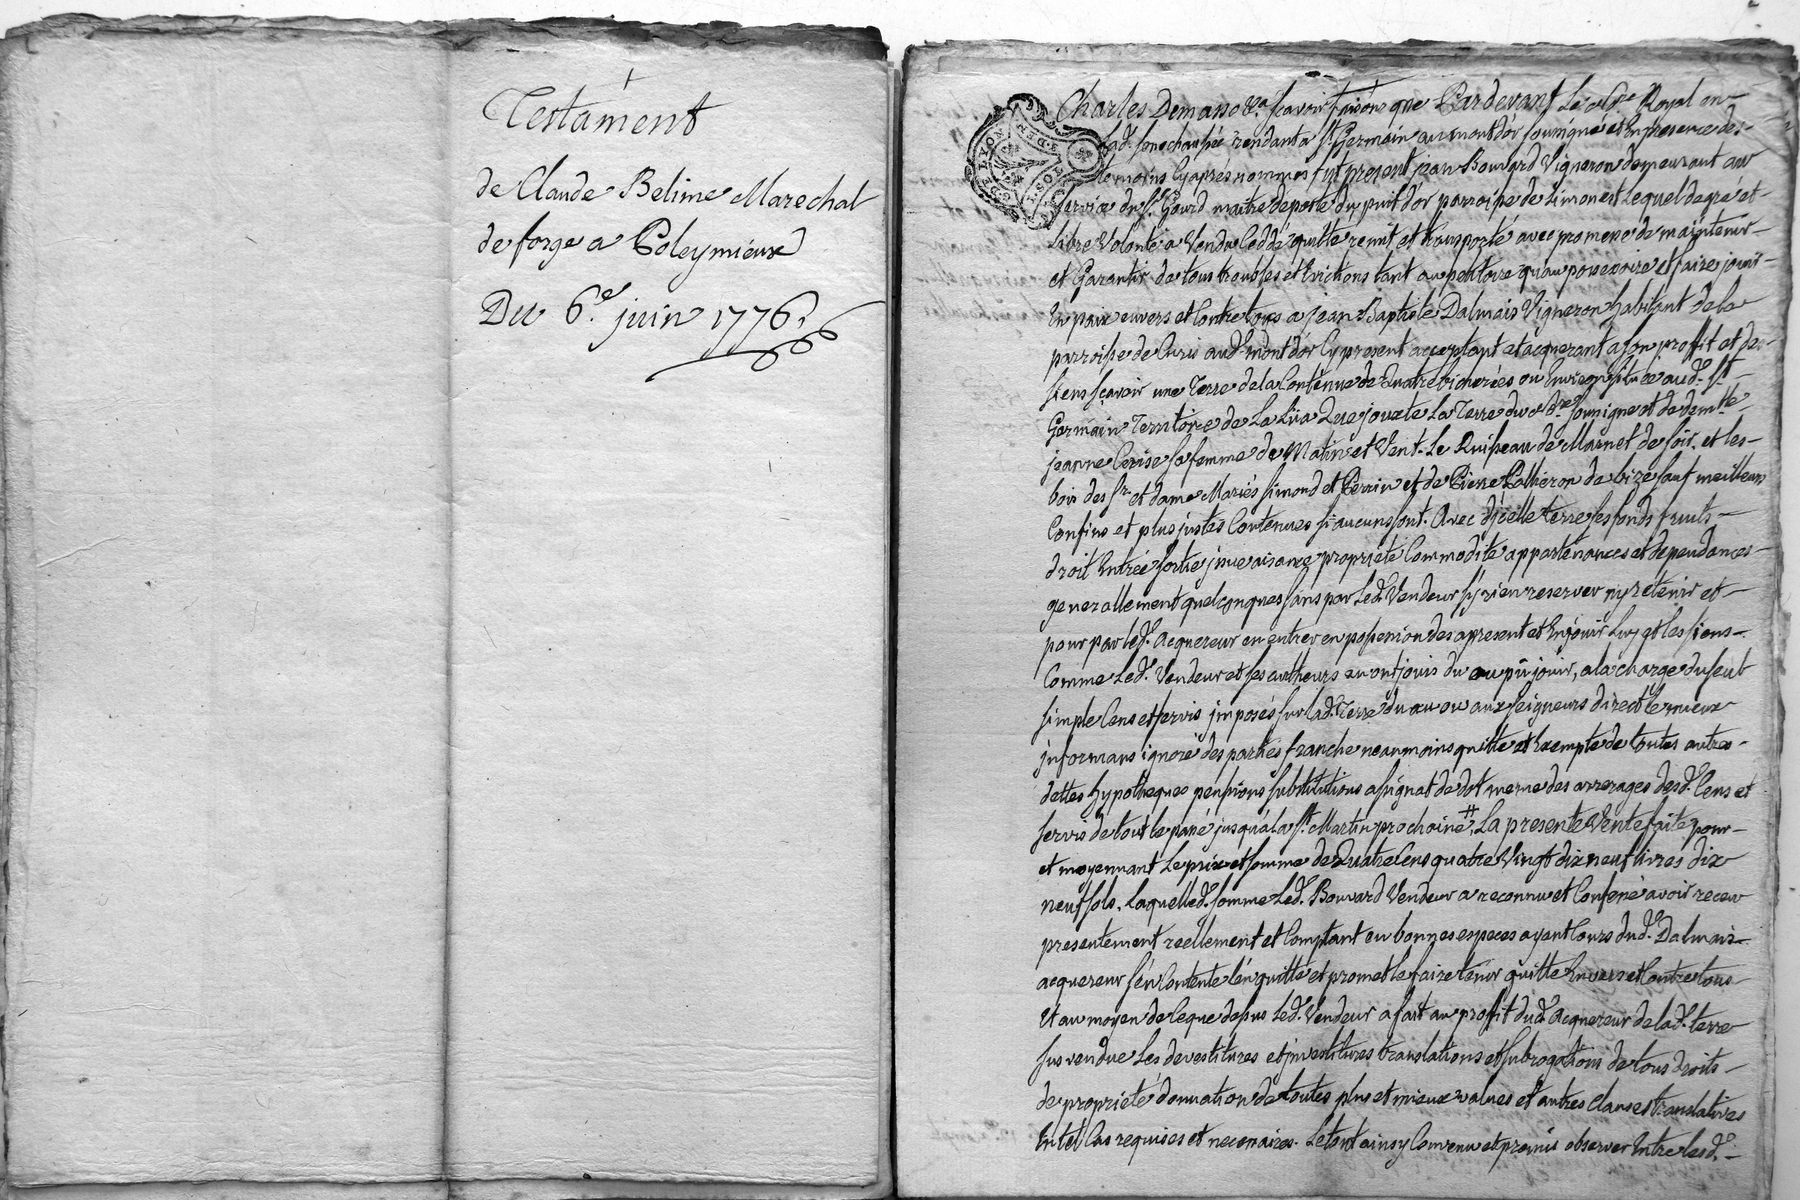 Testament
de Claude Belime Marechal
de forge a Poleymieux
Du 6e. juin 1776.
GEN. DE LYON
Charles Demano &a. scavoir faisons que Pardevant Le Nre Royal en
lad. senechaussée residant a St. Germain au mont d'or soussigné et En presence des
temoins Cy après nommés fut present jean Bouvard Vigneron demeurant au
service du Sr. Gourd maitre de poste du puit d'or parroisse de Limonest Lequel de gré et
Libre Volonté a Vendu Cedde quitte remit et transporté avec promesse de maintenir
et Garantir de tous troubles et Evictions tant au petitoire qu'au possessoire et faire jouir
En paix envers et Contre tous a jean Baptiste Dalmais Vigneron habitant de la
parroisse de Curis aud. mont dor Cy present acceptant et acquerant a son proffit et des
siens sçavoir une Terre de la Contenue de Quatre bicherées ou Environ située aud. St.
Germain Territoire de La que jouxte La Terre du Nre. soussigné et de demlle
jeanne Cerise sa femme de Matin et Vent. Le Ruisseau de Marnet de soir. et les
bois des Sr. et dame Mariés Simond et Perrin et de Pierre Pollieron de bize sauf meilleurs
Confins et plus justes Contenues si aucuns sont. Avec d'jcelle terre ses fonds fruits
droit Entrée sortie jssue aisance proprieté Commodité appartenances et dependances
generallement quelconques sans par Led. Vendeur s'y rien reserver ny retenir et
pour par led. acquereur en entrer en possession des apresent et En jouir Luy et les siens
Comme Led. Vendeur et ses autheurs en ont jouis du ou pû jouir, a la charge du seul
simple Cens et servis jmposés sur lad. Terre du au ou aux seigneurs direct le mieux
jnformans ignoré des parties franche neanmoins quitte et Exempte de toutes autres
dettes hypotheques pensions substitutions assignat de dot meme des arrerages desd. Cens et
servis de tout le passé jusqu'a la St. Martin prochaine #, La presente Vente faite pour
et moyennant Le prix et somme de Quatre Cens quatre Vingt dix neuf livres dix
neuf sols. Laquelled. somme Led. Bouvard Vendeur a reconnu et Confessé avoir receu
presentement reellement et Comptant en bonnes especes ayant Cours dud. Dalmais
acquereur s'en Contente l'en quitte et promet le faire tenir quitte Envers et Contre tous
Et au moyen de Ceque dessus Led. Vendeur a fait au proffit dud. acquereur de lad. terre
sus vendue Les devestitures et jnvestitures translations et subrogations de tous droits
de proprieté donnation de toutes plus et mieux values et autres Clauses translatives
En tel Cas requises et necessaires. Le tout ainsy Convenu et promis observer Entre lesd.